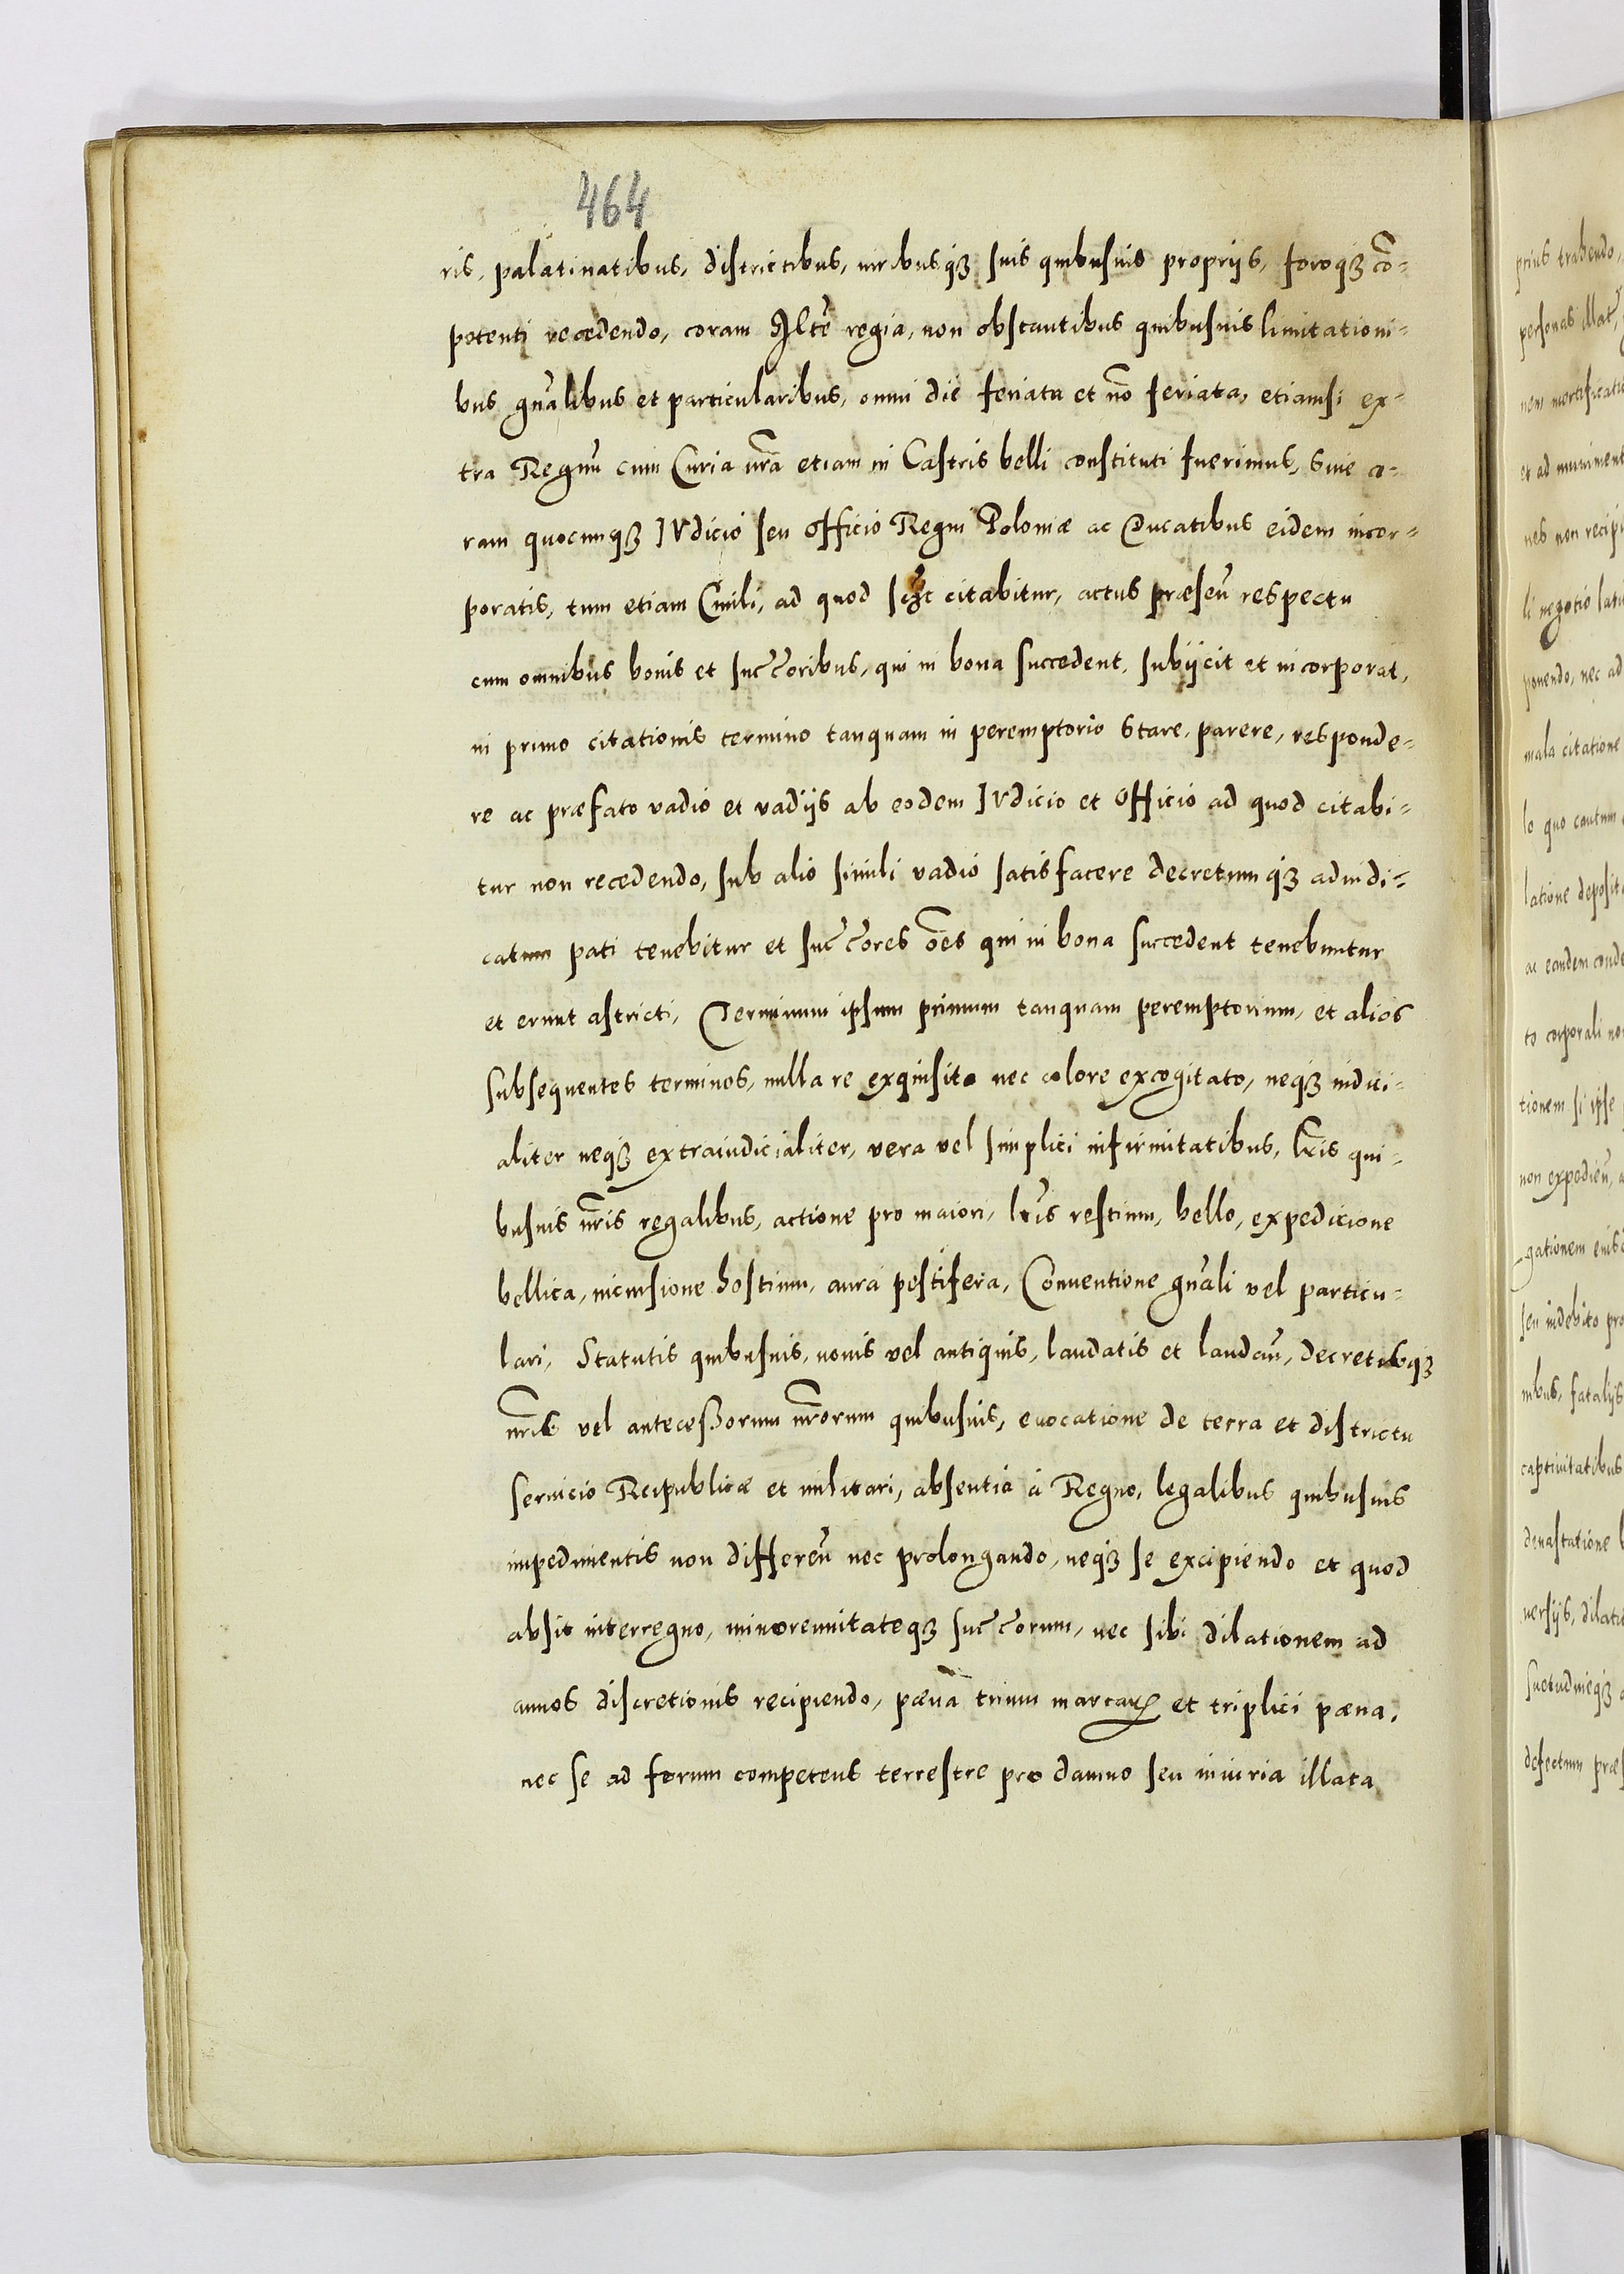 464
ris, palatinatibus, districtibus, iuribusq₃ suis quibusuis proprijs, foroq₃ cō-
petenti recedendo, coram Mlte regia, non obstantibus quibusuis limitationi-
bus gn̄alibus et particularibus, omni die feriata et nō feriata, etiamsi ex-
tra Regnū cum Curia nr̄a etiam in Castris belli constituti fuerimus, siue co-
ram quocunq₃ Iudicio seu officio Regni Poloniæ ac Ducatibus eidem incor-
poratis, tum etiam Ciuili, ad quod citabitur, actus præseñ respectu
cum omnibus bonis et succ̄oribus, qui in bona succedent, subijcit et incorporat,
in primo citationis termino tanquam in peremptorio stare, parere, responde-
re ac præfato vadio et vadijs ab eodem Iudicio et Officio ad quod citabi-
tur non recedendo, sub alio simili vadio satisfacere decretumq₃ adiudi-
catum pati tenebitur et succ̄ores ōes qui in bona succedent tenebuntur
et erunt astricti, Terminum ipsum primum tanquam peremptorium, et alios
subsequentes terminos, nulla re exquisita nec colore excogitato, neq₃ iudici-
aliter neq₃ extraiudicialiter, vera vel simplici infirmitatibus, lr̄is qui-
busuis nr̄is regalibus, actione pro maiori, lr̄is restium, bello, expedicione
bellica, incursione hostium, aura pestifera, Conuentione gn̄ali vel particu-
lari, Statutis quibusuis, nouis vel antiquis, laudatis et laudañ, decretisq₃
nr̄is vel antecessorum nr̄orum quibusuis, euocatione de terra et districtu
seruicio Reipublicæ et militari, absentia á Regno, legalibus quibusuis
impedimentis non differeñ nec prolongando, neq₃ se excipiendo et quod
absit interregno, minorennitateq₃ succ̄orum, nec sibi dilationem ad
annos discretionis recipiendo, pæna trium marcaꝝ et triplici pæna,
nec se ad forum competens terrestre pro damno seu iniuria illata
prius trahendo,
personas illat,
nem mortificatio
et ad muniment
nes non recipi
li negotio latu
ponendo, nec ad
mala citatione
lo quo cautum
latione deposit
ac eandem conde
to corporali no
tionem si ipse
non expedieñ, a
gationem eius
seu indebito pro
nibus, fatalijs
captiuitatibus
deuastatione b
uersijs, dilatio
suetudineq₃ a
defectum præs